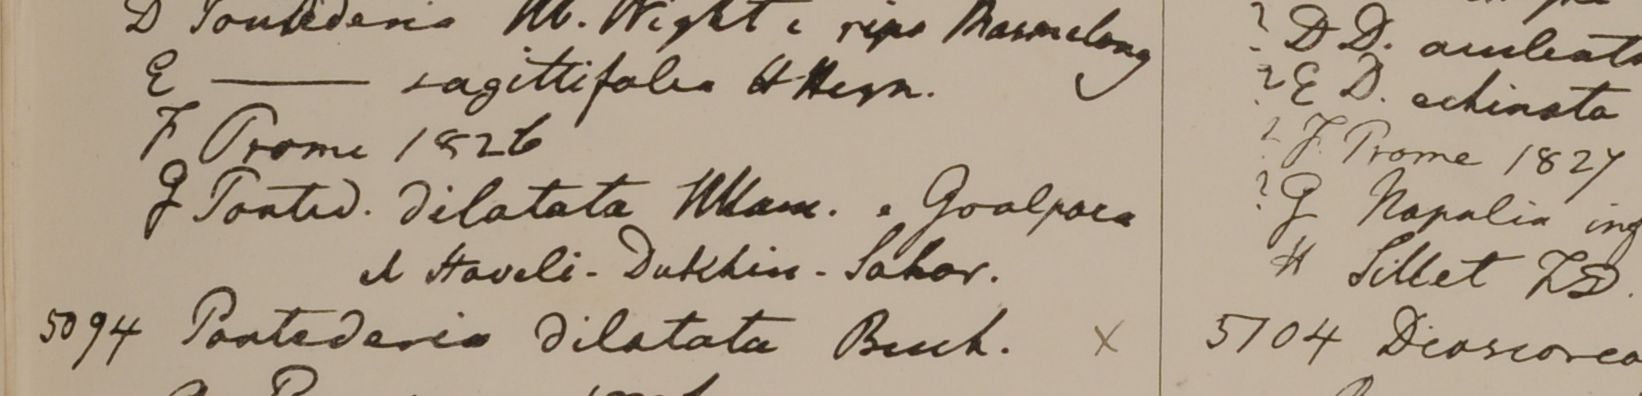 D Pontederia Hb. Wight e ripa
E —— sagittifolia H Heyn.
F Prome 1826
G Ponted. dilatata HHam. e Goalpara
et Haveli - Dukkhin - Sahar.
5094 Pontederia dilatata Buch. X
? D D. aculeata
? E D. echinata
? F. Prome 1827
? G Napalia
H Sillet FD.
5104 Dioscorea